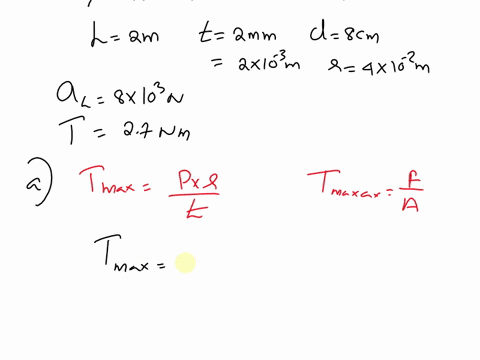 L = 2m t = 2mm d = 8cm
= 2×10⁻³m r = 4×10⁻²m
a_L = 8×10³N
T = 2.7 Nm
a) T_max = P×r/t T_maxax = F/A
T_max =